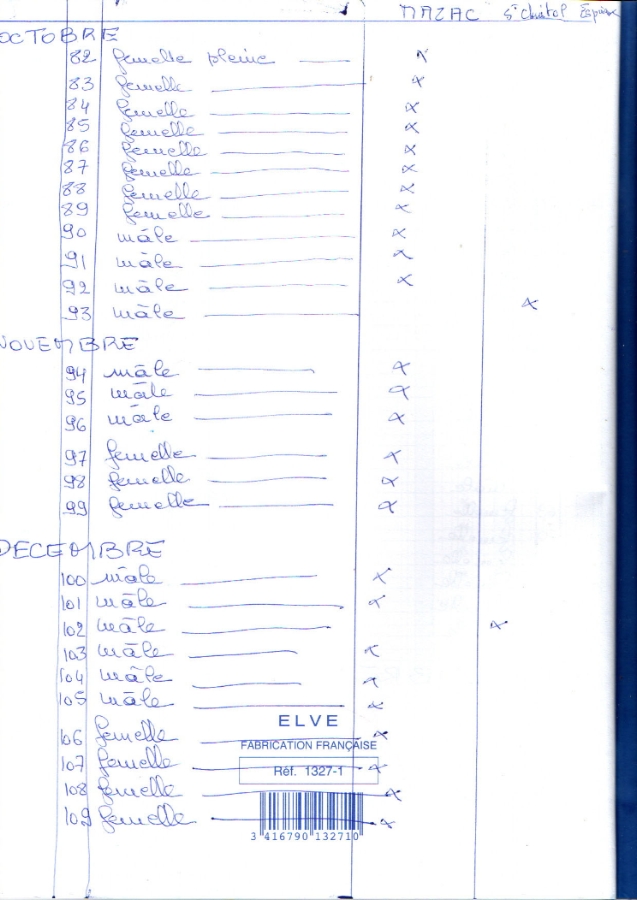 MAZAC St Christol
OCTOBRE
82 femelle pleine x
83 femelle x
84 femelle x
85 femelle x
86 femelle x
87 femelle x
88 femelle x
89 femelle x
90 mâle x
91 mâle x
92 mâle x
93 mâle x
NOVEMBRE
94 mâle x
95 mâle x
96 mâle x
97 femelle x
98 femelle x
99 femelle x
DECEMBRE
100 mâle x
101 mâle x
102 mâle x
103 mâle x
104 mâle x
105 mâle x
ELVE
106 femelle x
FABRICATION FRANÇAISE
107 femelle x
Réf. 1327-1
108 femelle x
109 femelle x
3 416790 132710